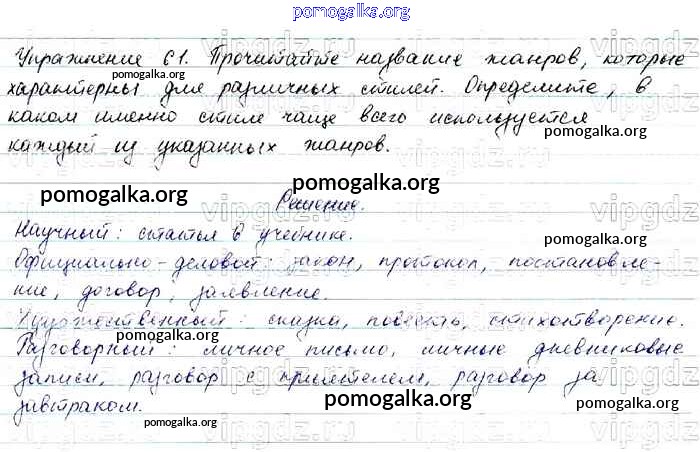 pomogalka.org
Упражнение 61. Прочитайте название жанров, которые
pomogalka.org
характерны для различных стилей. Определите, в
каком именно стиле чаще всего используется
pomogalka.org
каждый из указанных жанров.
pomogalka.org
pomogalka.org
vipgdz
Решение.
Научный: статья в учебнике.
pomogalka.org
Официально-деловой: закон, протокол, постановле-
ние, договор, заявление.
pomogalka.org
Художественный: сказка, повесть, стихотворение.
pomogalka.org
Разговорный: личное письмо, личные дневниковые
записи, разговор с приятелем, разговор за
завтраком.
pomogalka.org
pomogalka.org
pomogalka.org